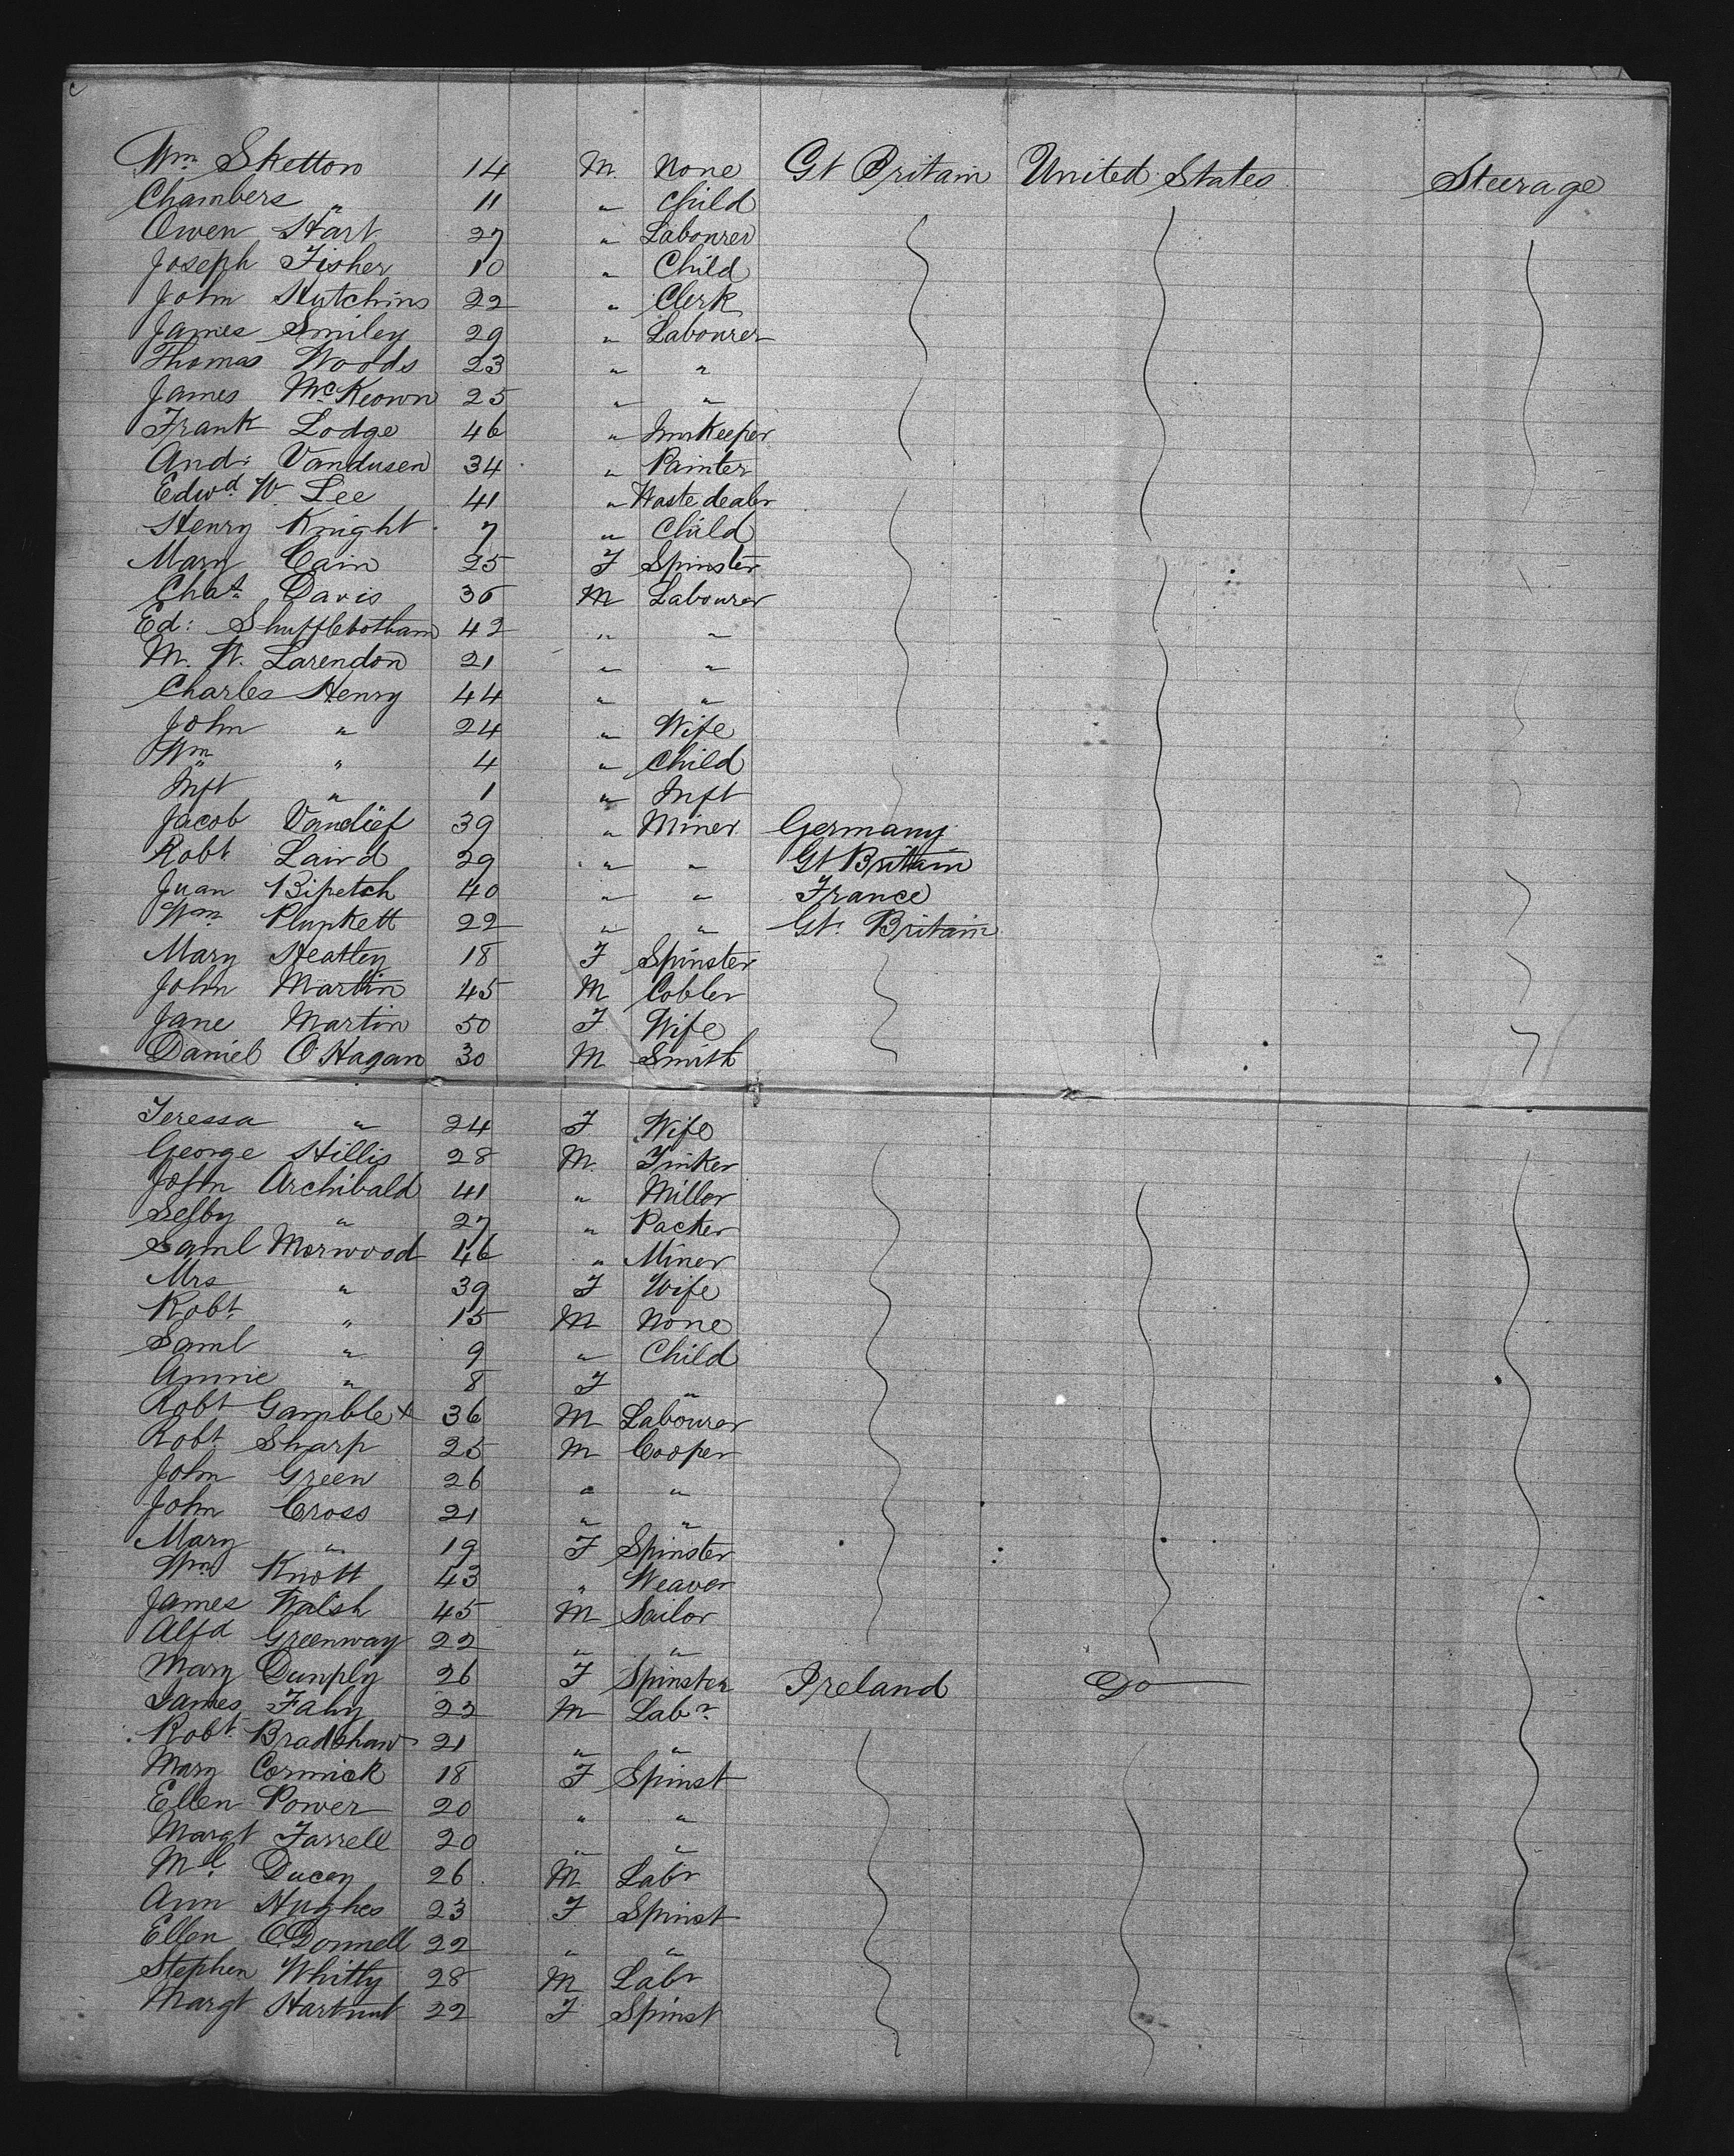 Wm Skelton 14 M. None Gt Britain United States Steerage
Chambers " 11 " Child
Owen Hart 27 " Labourer
Joseph Fisher 10 " Child
John Hutchins 22 " Clerk
James Smiley 29 " Labourer
Thomas Woods 23 " "
James McKeown 25 " "
Frank Lodge 46 " Innkeeper
And: Vandusen 34 " Painter
Edwd. W Lee 41 " Waste dealer
Henry Knight 7 " Child
Mary Cain 25 F Spinster
Chas. Davis 36 M Labourer
Ed: Shufflebotham 42 " "
M. W. Larendon 21 " "
Charles Henry 44 " "
John " 24 " Wife
Wm " 4 " Child
Inft " 1 " Inft
Jacob Vandief 39 " Miner Germany
Robt Laird 29 " " Gt Britain
Juan Bipetch 40 " " France
Wm. Plunkett 22 " " Gt. Britain
Mary Heatley 18 F Spinster
John Martin 45 M Cobler
Jane Martin 50 F Wife
Daniel O'Hagan 30 M Smith
Teressa " 24 F Wife
George Hillis 28 M. Tinker
John Archibald 41 " Miller
Selby " 27 " Packer
Saml Morwood 46 " Miner
Mrs " 39 F Wife
Robt. " 15 M None
Saml " 9 " Child
Annie " 8 F "
Robt Gamble x 36 M Labourer
Robt Sharp 25 M Cooper
John Green 26 " "
John Cross 21 " "
Mary " 19 F Spinster
Wm Knott 43 " Weaver
James Walsh 45 M Sailor
Alfd Greenway 22 " "
Mary Dunply 26 F Spinster Ireland Do
James Fahy 22 M Labr.
Robt. Bradshaw 21 " "
Mary Cormick 18 F Spinst
Ellen Power 20 " "
Margt Farrell 20 " "
Ml. Ducey 26 M Labr
Ann Hughes 23 F Spinst
Ellen O'Donnell 22 " "
Stephen Whitty 28 M Labr
Margt Hartnet 22 F Spinst